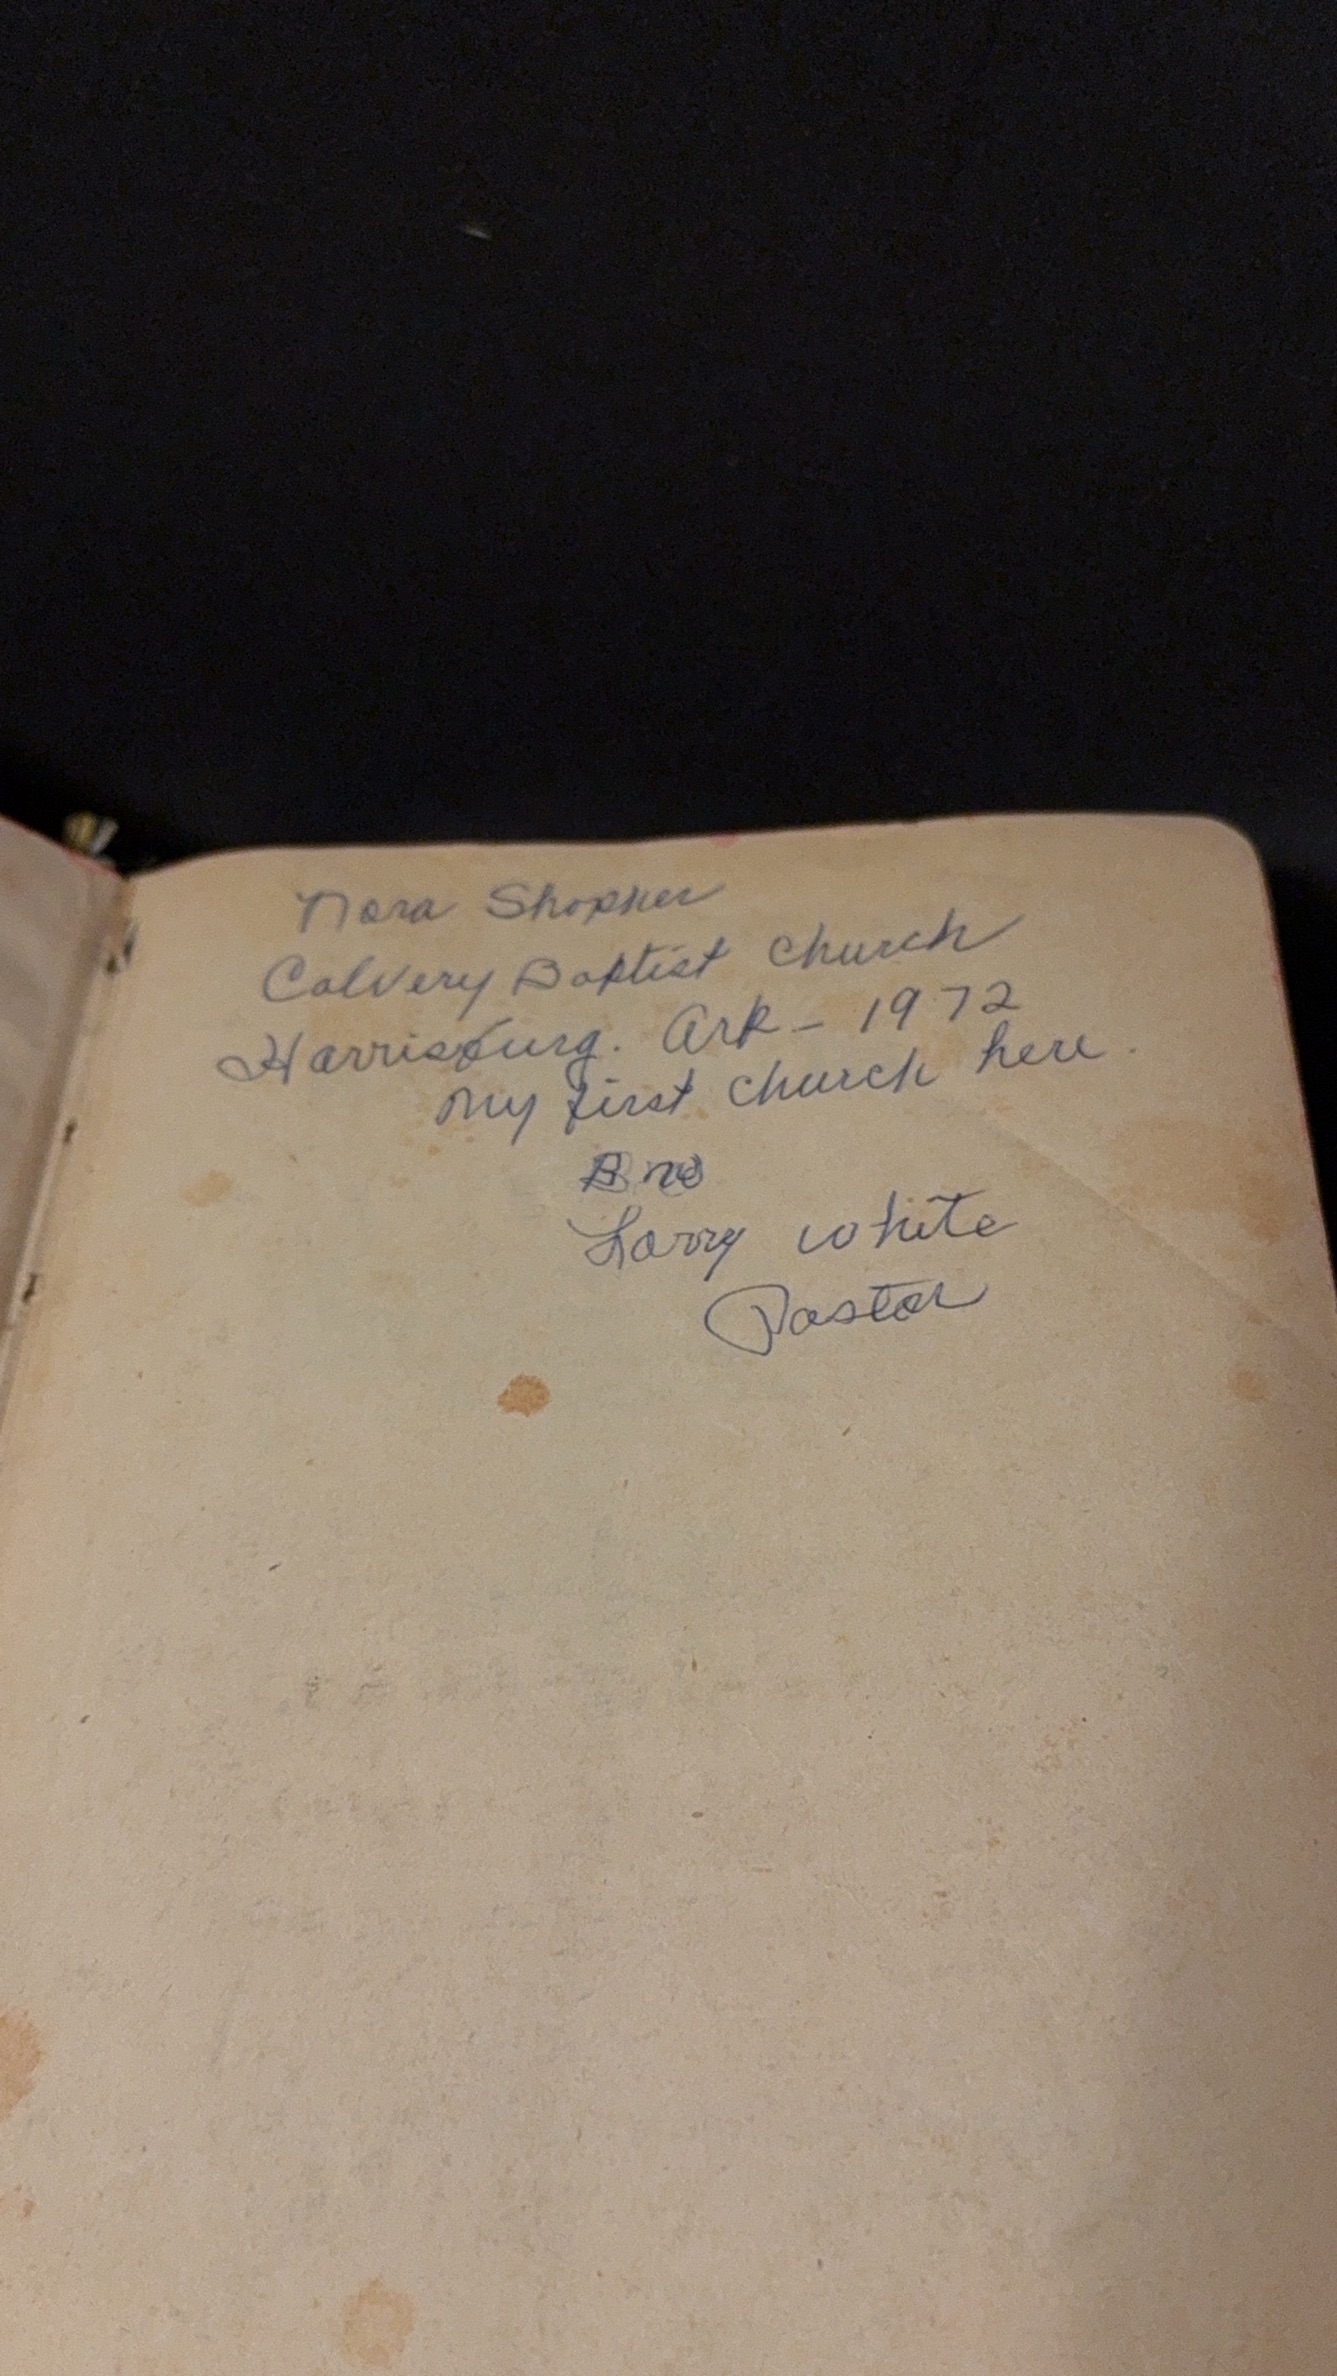 Nora Shopher
Calvery Baptist church
Harrisburg. Ark - 1972
my first church here.
Bro
Larry white
Pastor